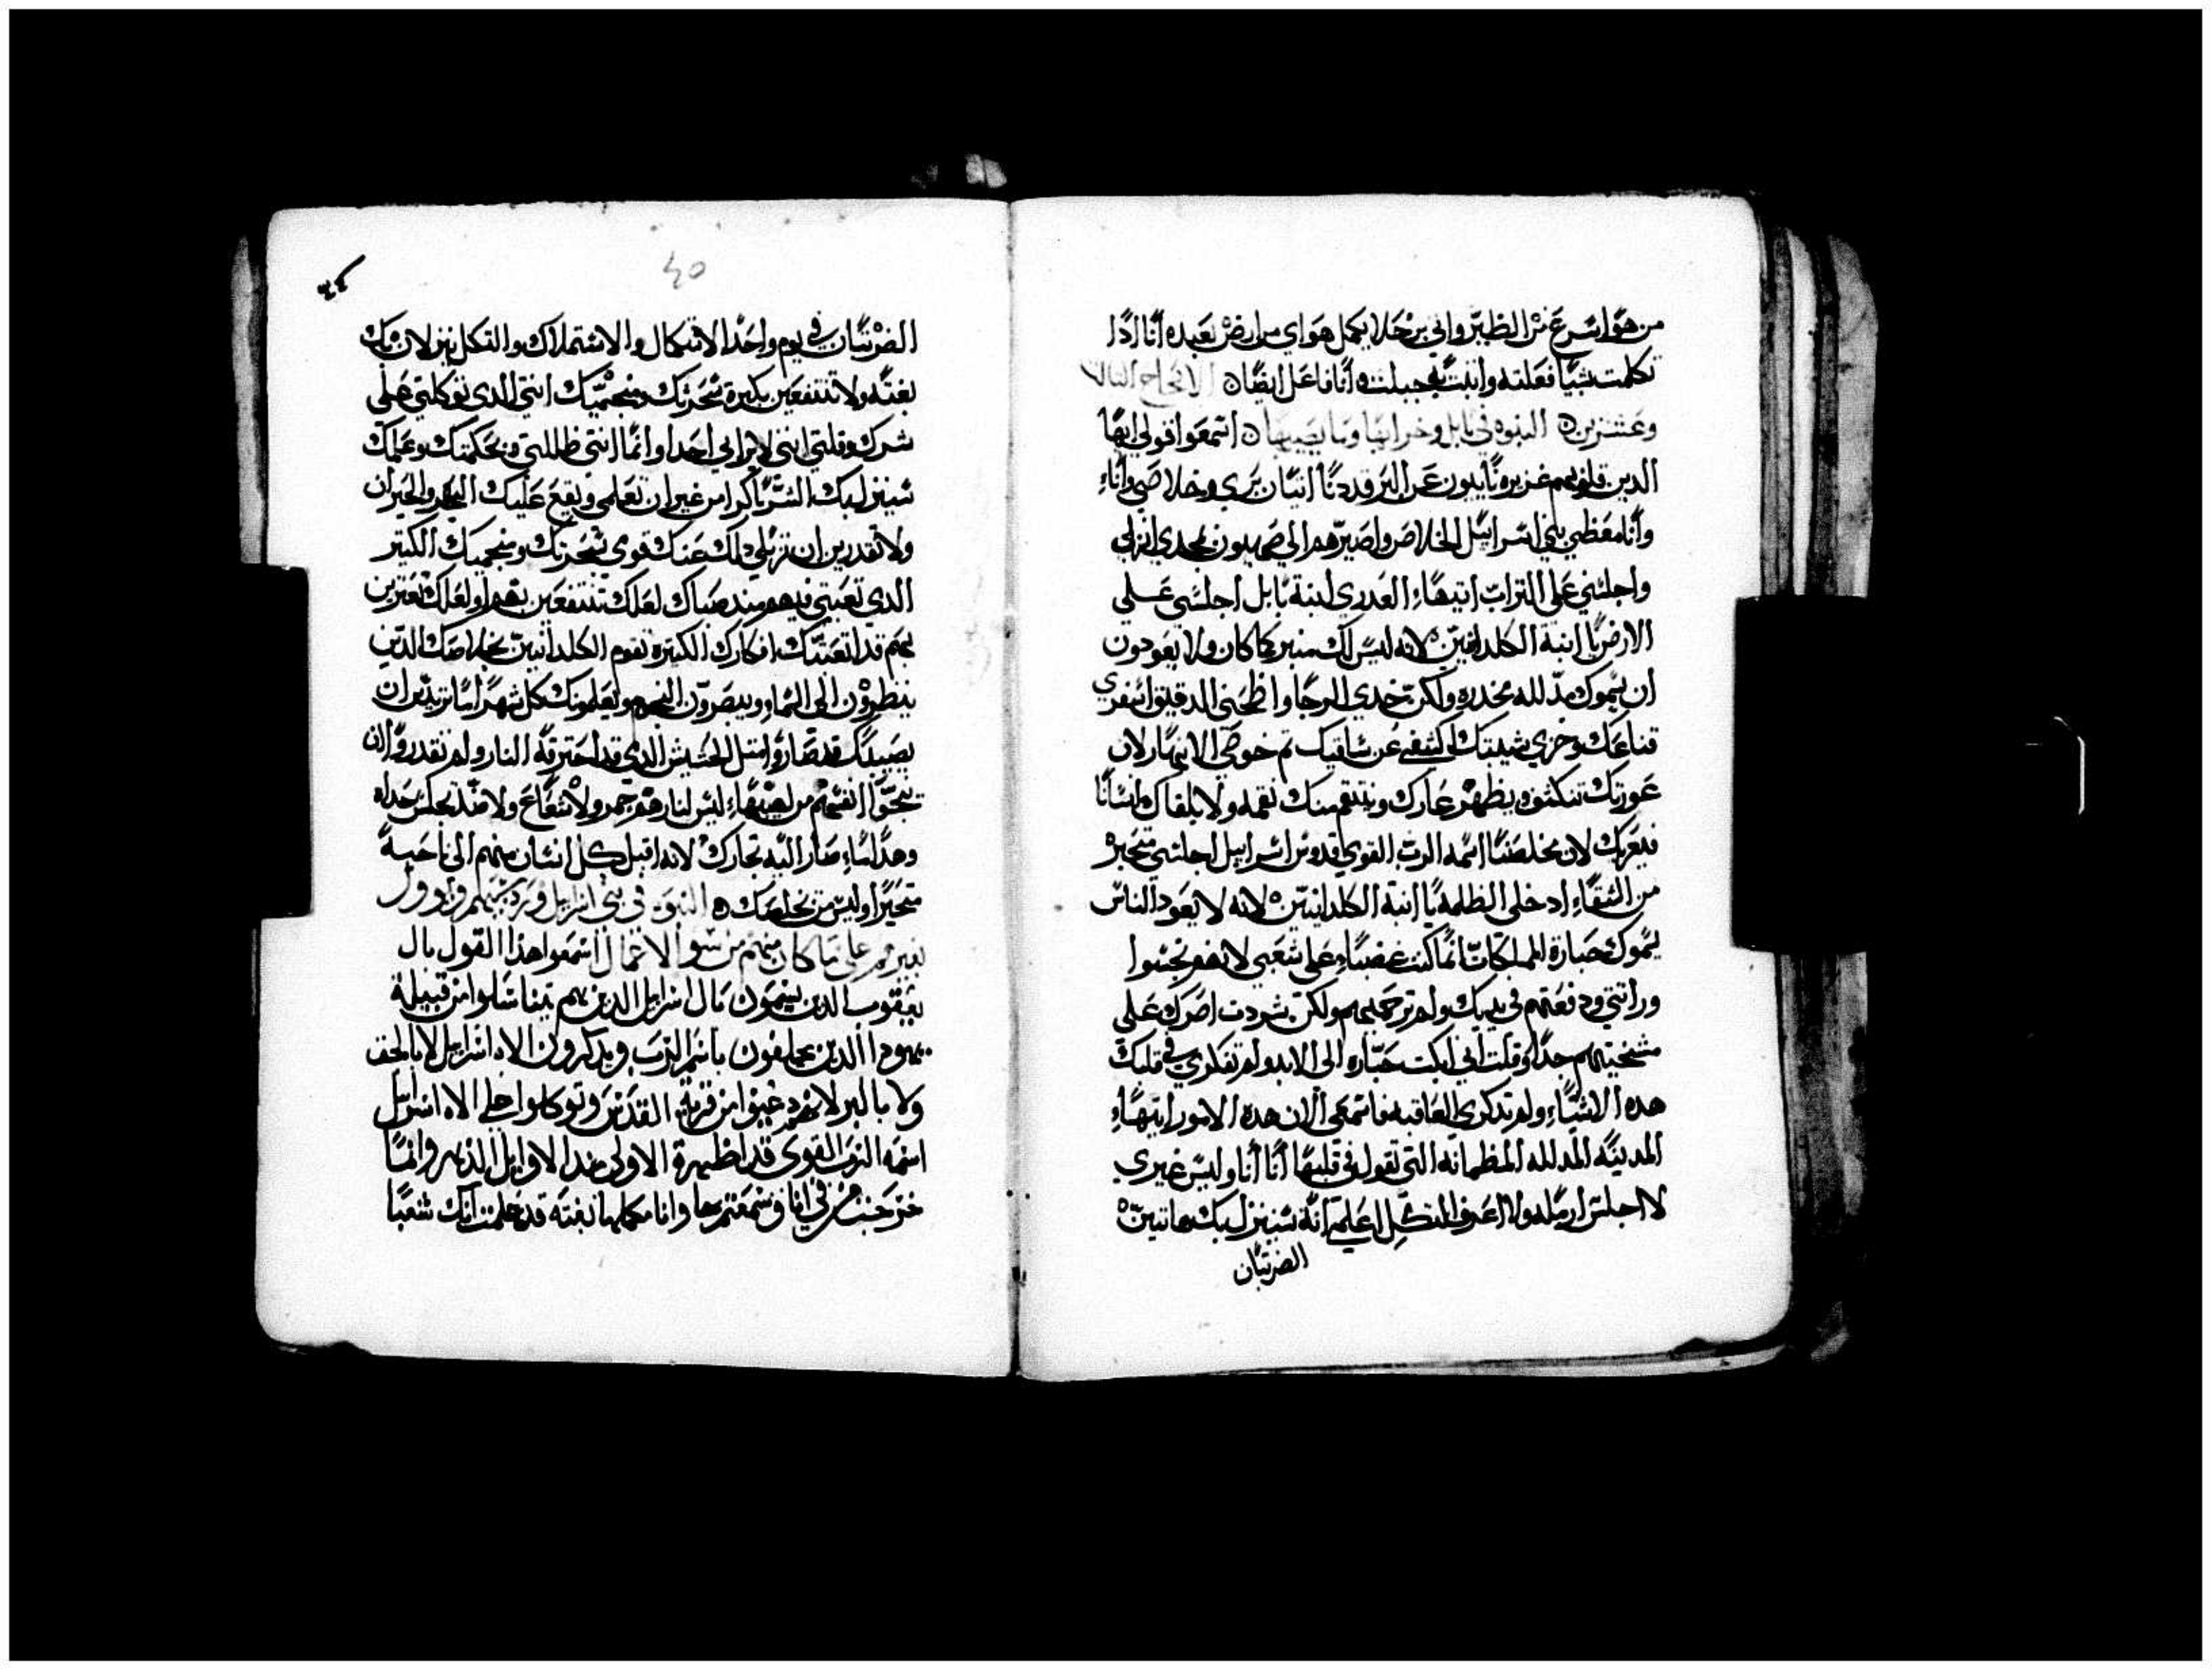 من هو اسرع من الطير واني برجلا يكمل هواي من ارض بعيده انا اذا
تكلمت بشيا فعلته وانبت جبلت انا فاعل ايضا الاصحاح الثالث
وعشرين النبوه في بابل وخرابها وما يصيبها اسمعوا قولي ايها
الدين قلوبهم عزيزه نايدون عن البر قد دنا اتيان بري وخلاصي واناء
وانا معطي بني اسراييل الخلاص واصيرهم الي صهيون بمجدي انزلي
واجلسي على التراب ايتهاء العدري ابنة بابل اجلسي علي
الارض يا ابنة الكلدانيين لانه ليس لك منبر كما كان ولا يعودون
ان يسموك مدلله مخدره ولكن خدي الرحا واطحني الدقيق اسفري
قناعك وجزي شيبتك اكشفي عن ساقيك تم خوضي الانهار لان
عورتك تنكشف ويظهر عارك وينتقم منك نقمه ولا يلقاك انسانا
فيعزيك لان مخلصنا اسمه الرب القوي قدوس اسراييل اجلسي متحيره
من الشقاء ادخلي الظلمة يا ابنة الكلدانيين لانه لا يعود الناس
يسموك جبارة المملكات انما كنت غضباء على شعبي لانهم نجسوا
وراتتي ودفعتهم في يديك ولم ترحميهم ولكن شددت اصرك على
مشيختهم جدا وقلت اني اكت جباره الى الابد ولم تفكري في قلبك
هده الاشياء ولم تدكري العاقبه فاسمعي الان هده الامور ايتهاء
المدينه المدلله المطمانه التي تقول في قلبها انا انا وليس غيري
لا اجلس ارمله ولا اعرف التكل اعلمي انه سينزل بك هاتين
الضربتان
٤٥
الضربتان في يوم واحد الاتكال والاسترملاك والتكل ينزلان بك
بغته ولا تنتفعين بكثرة سحرتك ومنجميك انتي الدي توكلتي علي
شرك وقلتي انني لا يراني احدا وانما انتي ظللتي بحكمتك وعلمك
سينزل بك الشر باكرا من غير ان تعلمي ويقع عليك الجهد والحيران
ولا تقدرين ان تزيلي دلك عنك قوي سحرتك ومنجميك الكتير
الدي تعبتي فيهم مند صباك لعلك تنتفعين بهم او لعلك تعتزين
بهم قد اتعبتك افكارك الكتيرة تقوم الكلدانيين بخلاصك الدين
ينظرون الى السماء ويبصرون النجوم ويعلمونك كل شهر اشيا تريدين ان
تصيبك قد صاروا متل الحشيش الدي قد احترقه النار ولم تقدروا ان
ينجوا انفسهم من لهبهاء ليس لنارهم جمر ولا شعاع ولا
وهداء صار اليه تجارك لانه اقبل كل انسان منهم الى ناحية
متحيرا وليس من يخلصك النبوه في بني اسراييل
على ما كان منهم من سو الاعمال اسمعوا هدا القول يال
يعقوب الدين يسمون يال اسراييل الدين هم تناسلوا من قبيلة
يهودا الدين يحلفون باسم الرب ويدكرون الاه اسراييل لا بالحق
ولا بالبر لانهم رغبوا من قرية القدس وتوكلوا علي الاه اسراييل
اسمه الرب القوي قد اظهرة الاولى مند الاوايل الدهر وانما
خرجت من في انا وسمعتم بها وانا مكملها بغته قد علمت انك شعبا